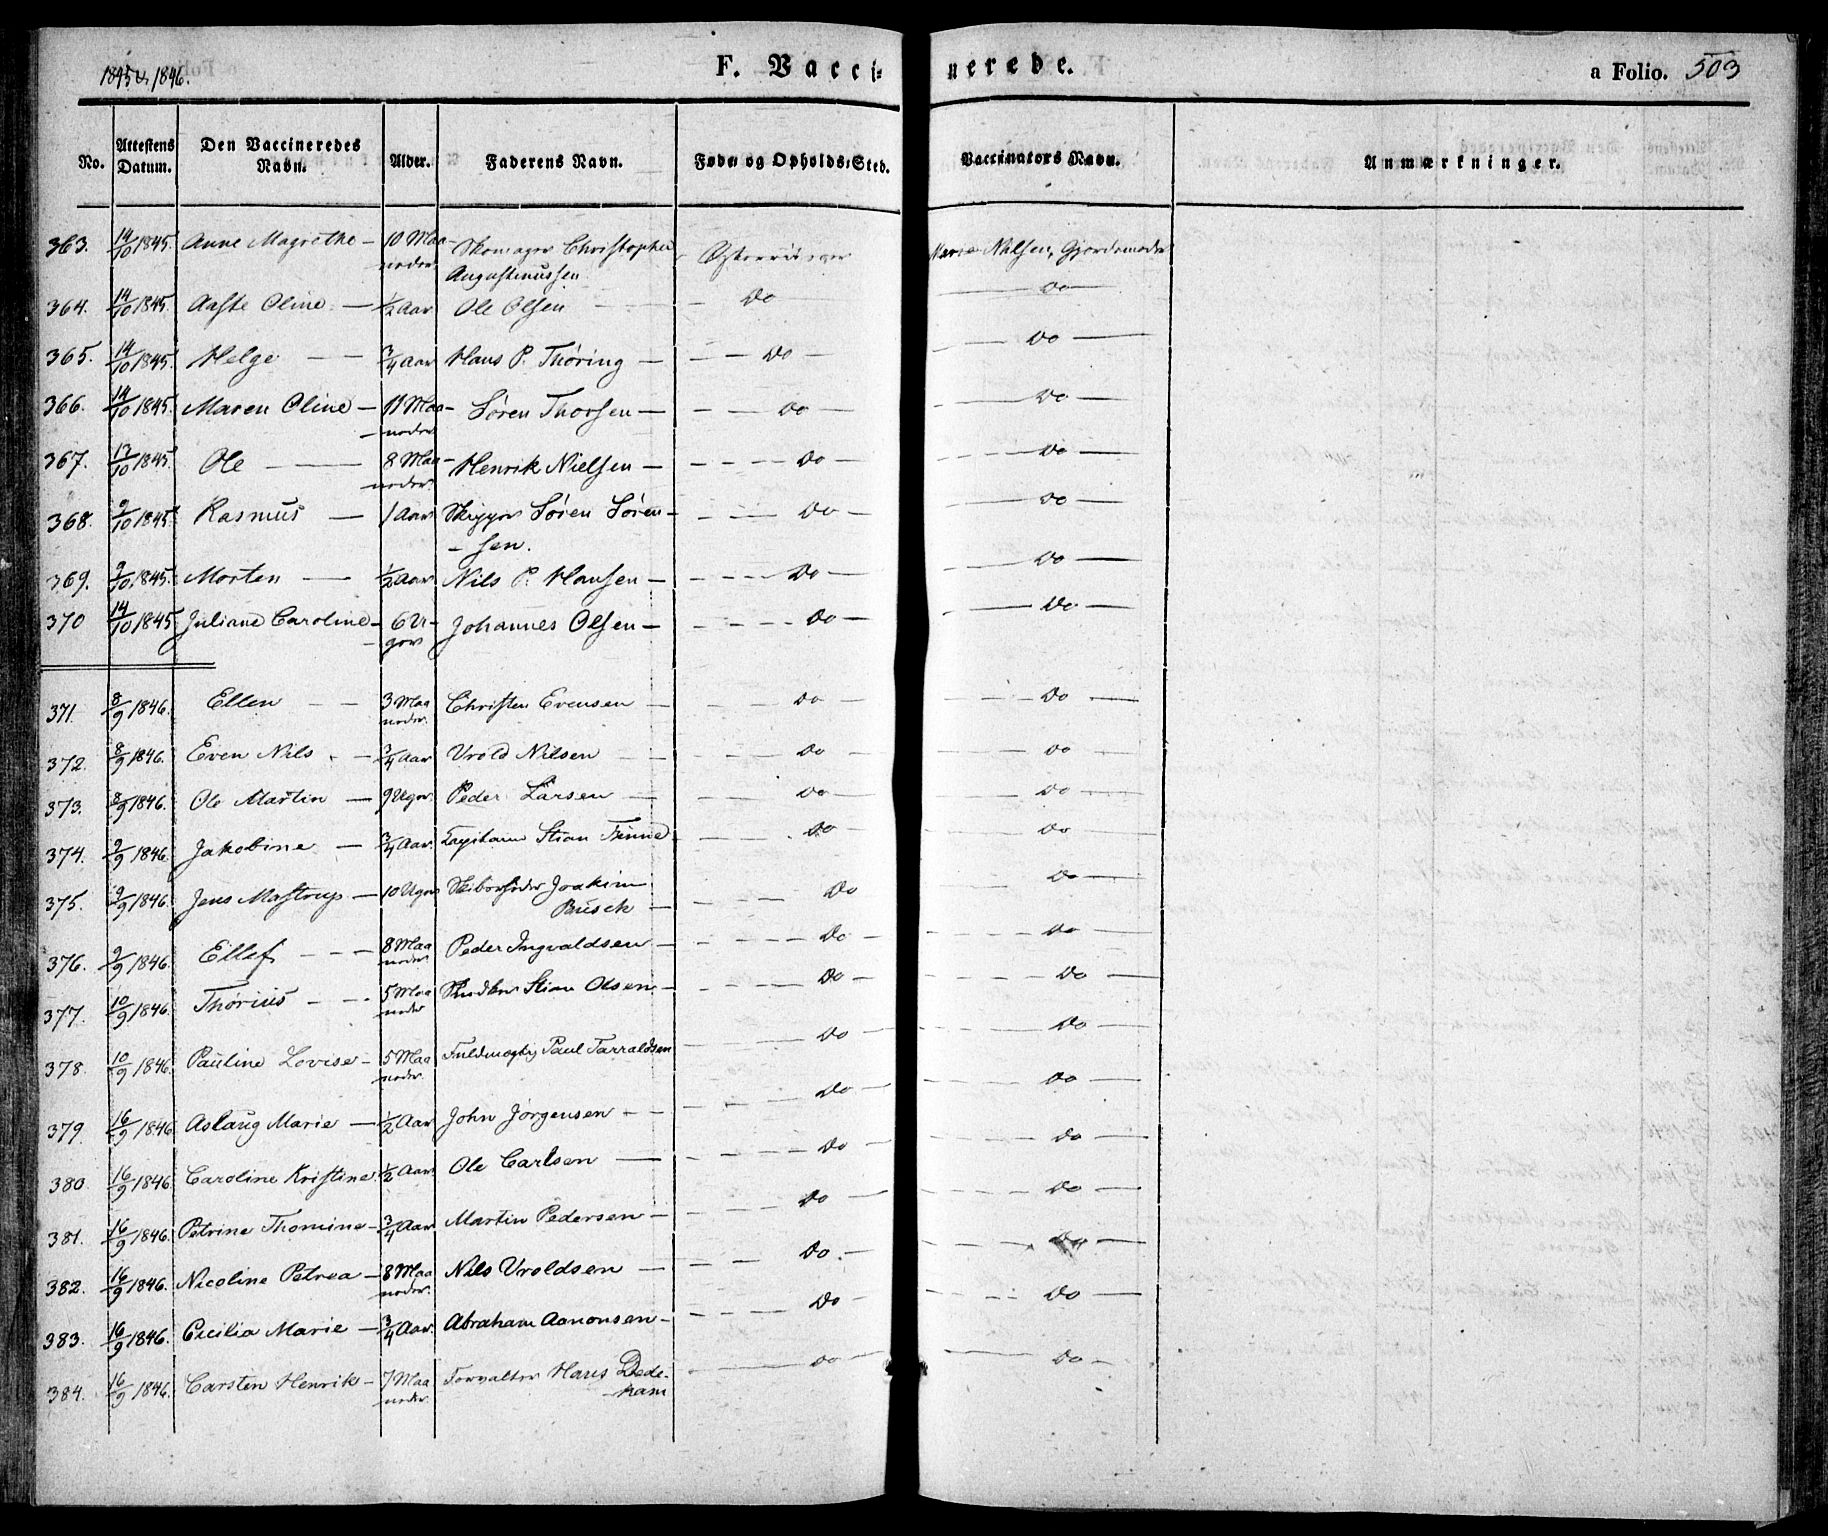 1845 & 1846.
F. Vacci- nerede.
a Folio. 503
No. Attestens Datum. Den Vaccineredes Navn. Alder. Faderens Navn. Føde og Opholds-Sted. Vaccinators Navn. Anmærkninger.
363. 14/10 1845. Anne Magrethe — 10 Maa- Skomager Christopher Østerriisøer Nilsen, Gjordemoder
neder Augustinussen
364. 14/10 1845. Aaste Oline. — 1/2 Aar Ole Olsen — Do — Do —
365. 14/10 1845. Helge — 3/4 Aar Hans P. Thøring — Do — Do —
366. 14/10 1845. Maren Oline — 11 Maa- Søren Thorsen — Do — Do —
neder
367. 13/10 1845. Ole — 8 Maa- Henrik Nielsen — Do — Do —
neder.
368. 9/10 1845. Rasmus — 1 Aar Skipper Søren Søren- Do — Do —
sen.
369. 9/10 1845. Morten — 1/2 Aar Nils P. Hansen — Do — Do —
370 14/10 1845 Juliane Caroline — 6 U- Johannes Olsen — Do — Do —
ger
371. 8/9 1846. Ellen — 3 Maa Christen Evensen — Do — Do —
neder.
372. 8/9 1846. Even Nils — 3/4 Aar Vrold Nilsen — Do — Do —
373. 8/9 1846. Ole Martin — 9 Uger Peder Larsen — Do — Do —
374. 9/9 1846. Jakobine — 3/4 Aar. Capitain Stian Finne Do — Do
375. 9/9 1846. Jens Mastrup — 10 Uger Joakim Do — Do —
Busch —
376. 9/9 1846. Ellef — 8 Maa Peder Ingvaldsen — Do — Do —
neder
377. 10/9 1846. Thorius — 5 Maa Stian Olsen — Do — Do —
neder
378. 10/9 1846. Pauline Lovise — 5 Maa Fuldmægtig Paul Tarraldsen Do — Do —
neder.
379. 16/9 1846 Aslaug Marie — 1/2 Aar John Jørgensen — Do — Do —
380. 16/9 1846. Caroline Kristine 1/2 Aar. Ole Carlsen — Do — Do —
381. 16/9 1846. Petrine Thomine — 3/4 Aar Martin Pedersen — Do — Do —
382. 16/9 1846. Nicoline Petrea — 8 Maa Nils Vroldsen — Do. — Do —
neder.
383. 16/9 1846. Cecilia Marie — 3/4 Aar. Abraham Aanonsen — Do — Do —
384. 16/9 1846. Carsten Henrik — 7 Maa Forvalter Hans Dede- Do — Do —
neder kam